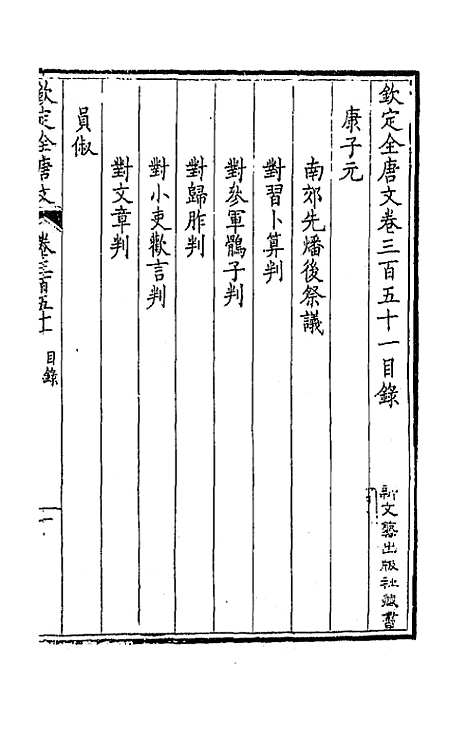 欽定全唐文卷三百五十一目錄
新文藝出版社藏書
康子元
南郊先燔後祭議
對習卜算判
對叅軍鶻子判
對歸胙判
對小吏歡言判
對文章判
員俶
欽定全唐文 卷三百五十一 目錄 一